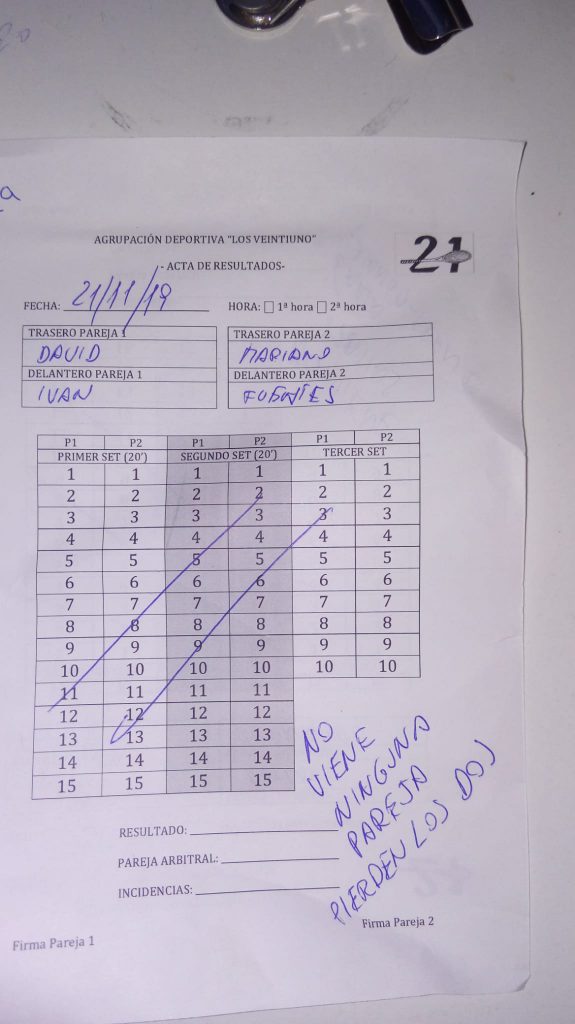 a
AGRUPACIÓN DEPORTIVA "LOS VEINTIUNO"
21
- ACTA DE RESULTADOS-
FECHA: 21/11/19 HORA: 1ª hora 2ª hora
TRASERO PAREJA 1 TRASERO PAREJA 2
DAVID MARIANO
DELANTERO PAREJA 1 DELANTERO PAREJA 2
IVAN FUENTES
P1 P2 P1 P2 P1 P2
PRIMER SET (20') SEGUNDO SET (20') TERCER SET
1 1 1 1 1 1
2 2 2 2 2 2
3 3 3 3 3 3
4 4 4 4 4 4
5 5 5 5 5 5
6 6 6 6 6 6
7 7 7 7 7 7
8 8 8 8 8 8
9 9 9 9 9 9
10 10 10 10 10 10
11 11 11 11
12 12 12 12
13 13 13 13
14 14 14 14
15 15 15 15
NO
VIENE
NINGUNA
PAREJA
PIERDEN LOS DOS
RESULTADO:
PAREJA ARBITRAL:
INCIDENCIAS:
Firma Pareja 1 Firma Pareja 2